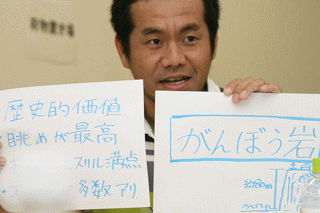 歴史的価値
眺めが最高
スリル満点
多数アリ
がんぼう岩